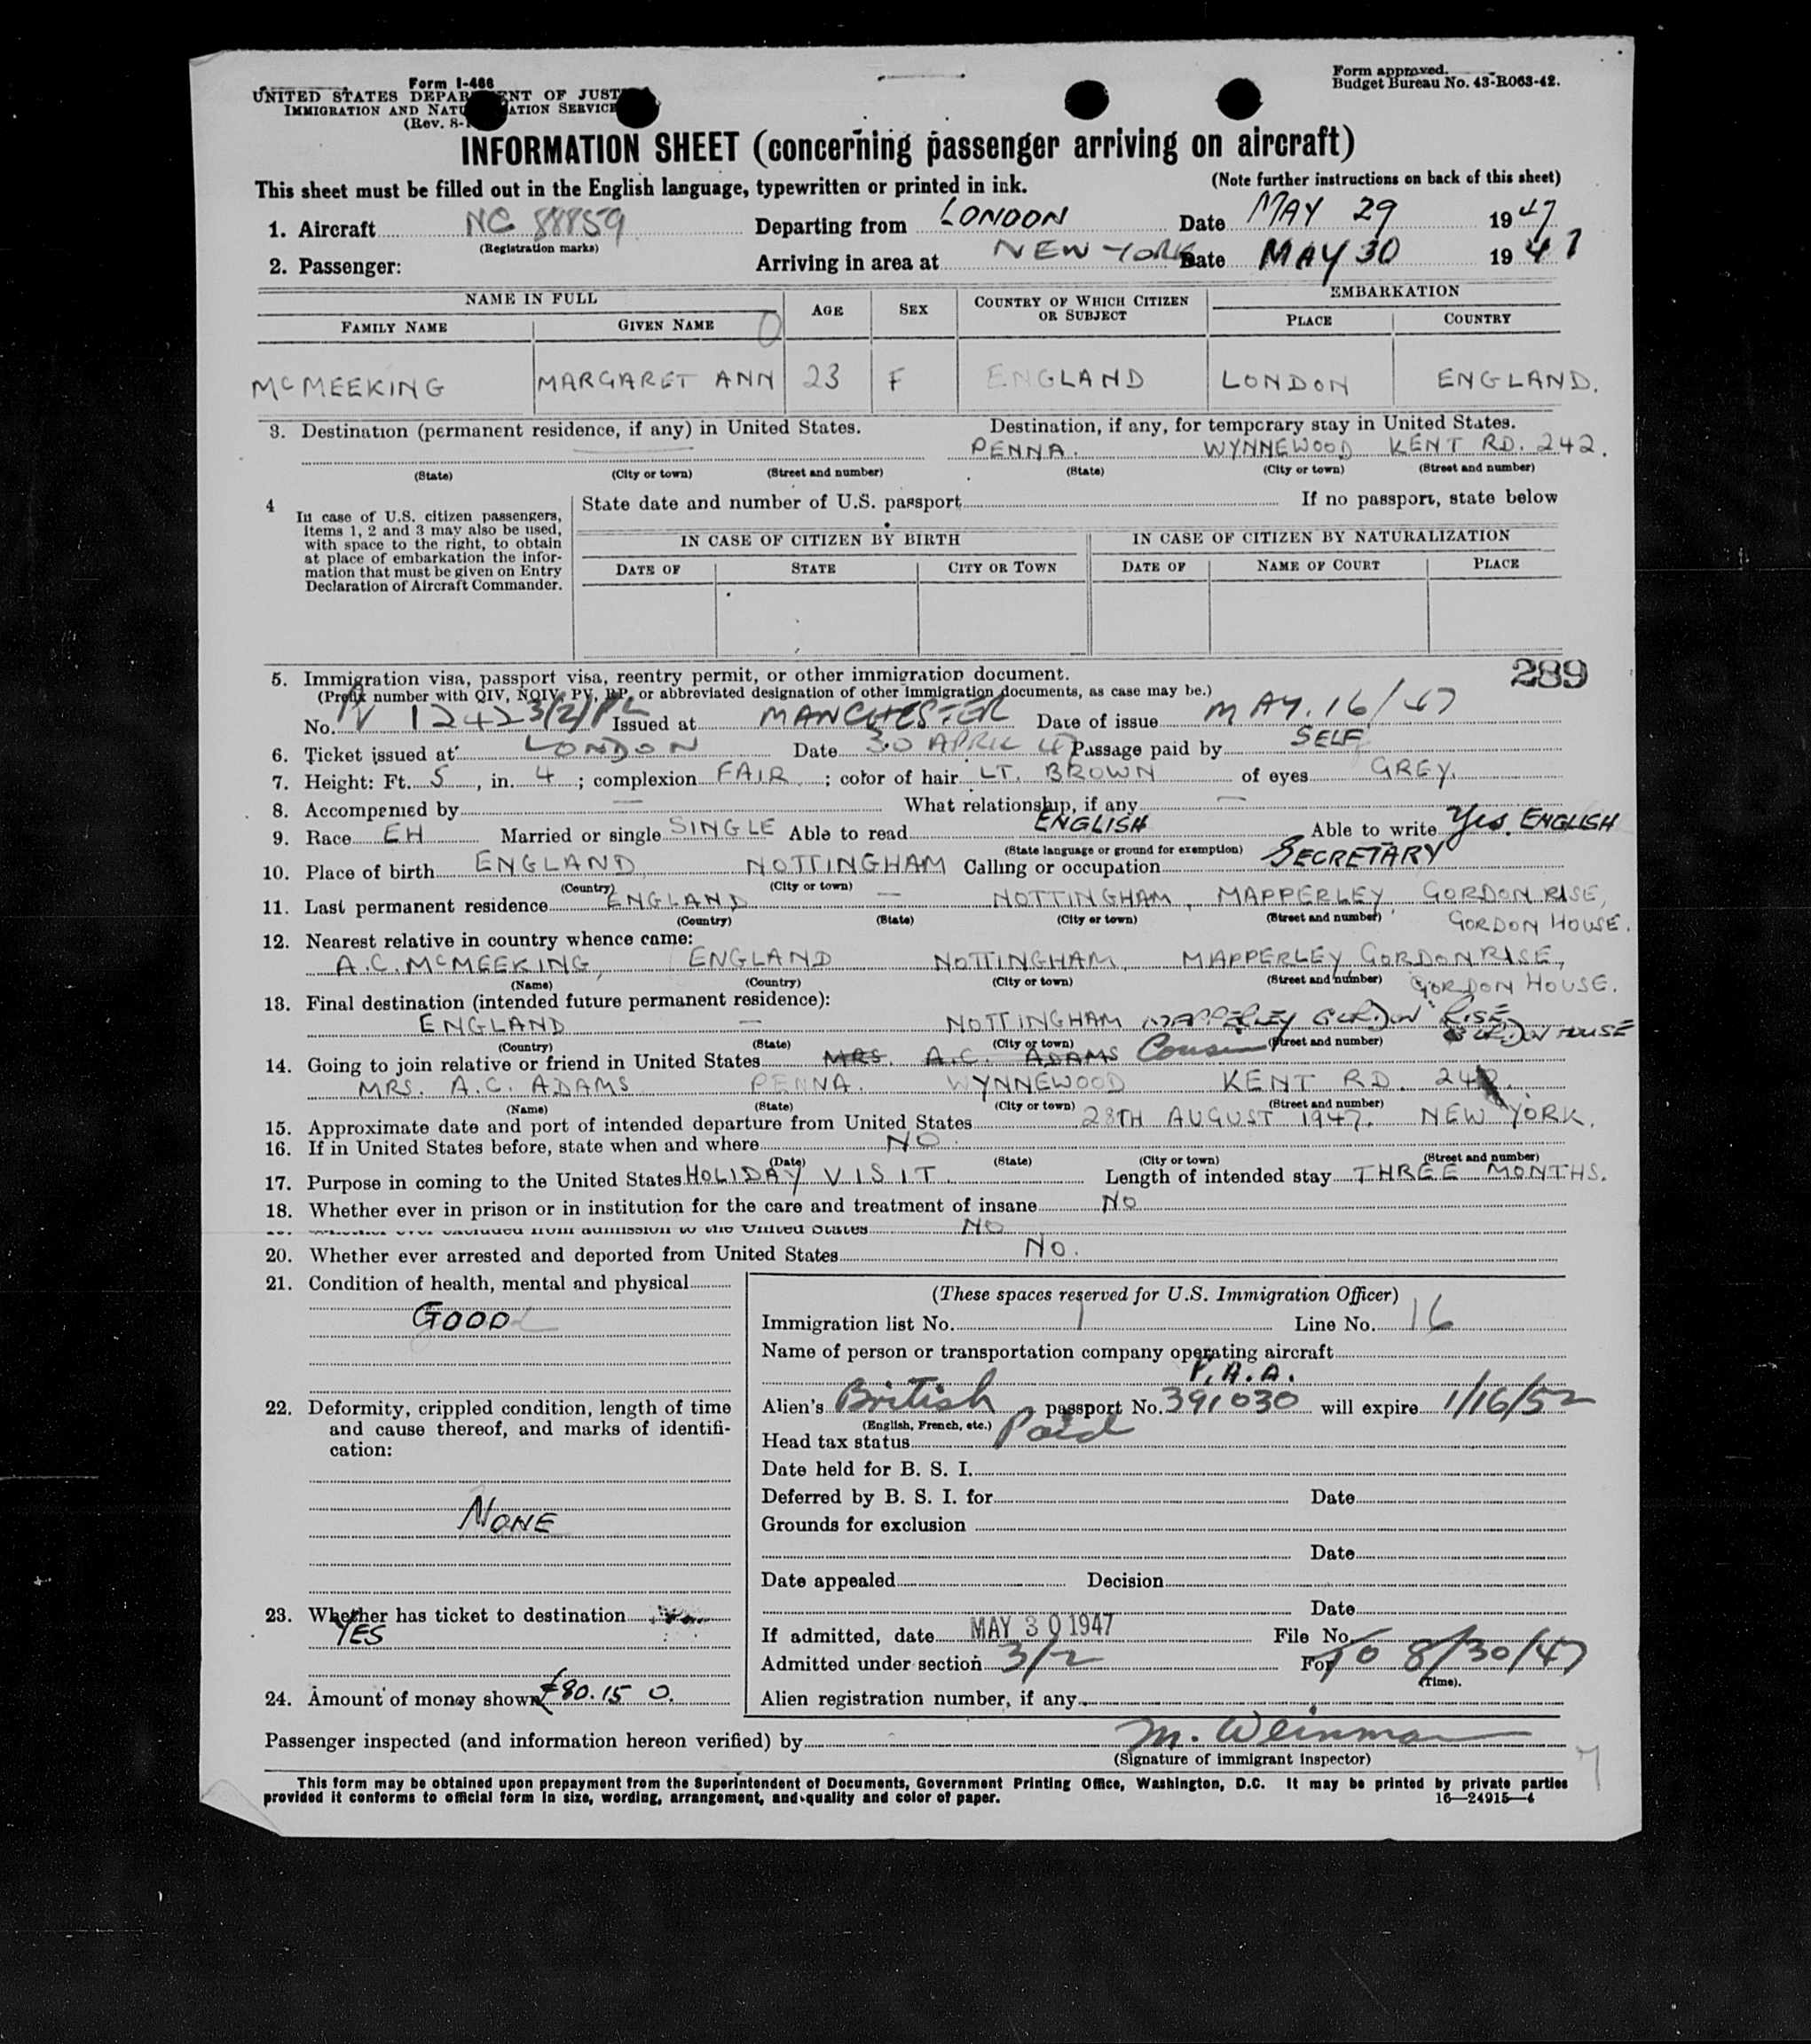 Form I-466
UNITED STATES DEPARTMENT OF JUSTICE
IMMIGRATION AND NATURALIZATION SERVICE
(Rev. 8-
Form approved.
Budget Bureau No. 43-R063-42.
INFORMATION SHEET (concerning passenger arriving on aircraft)
This sheet must be filled out in the English language, typewritten or printed in ink. (Note further instructions on back of this sheet)
1. Aircraft NC 88859 Departing from LONDON Date MAY 29 1947
(Registration marks)
2. Passenger: Arriving in area at NEW YORK Date MAY 30 1947
NAME IN FULL AGE SEX COUNTRY OF WHICH CITIZEN OR SUBJECT EMBARKATION
FAMILY NAME GIVEN NAME PLACE COUNTRY
McMEEKING MARGARET ANN 23 F ENGLAND LONDON ENGLAND.
3. Destination (permanent residence, if any) in United States. Destination, if any, for temporary stay in United States.
PENNA. WYNNEWOOD KENT RD. 242.
(State) (City or town) (Street and number) (State) (City or town) (Street and number)
4 In case of U.S. citizen passengers, items 1, 2 and 3 may also be used, with space to the right, to obtain at place of embarkation the information that must be given on Entry Declaration of Aircraft Commander.
State date and number of U.S. passport If no passport, state below
IN CASE OF CITIZEN BY BIRTH IN CASE OF CITIZEN BY NATURALIZATION
DATE OF STATE CITY OR TOWN DATE OF NAME OF COURT PLACE
289
5. Immigration visa, passport visa, reentry permit, or other immigration document.
(Prefix number with QIV, NQIV, PV, RP, or abbreviated designation of other immigration documents, as case may be.)
No. PV 12423(2)PL Issued at MANCHESTER Date of issue MAY. 16/47
6. Ticket issued at LONDON Date 30 APRIL 47 Passage paid by SELF
7. Height: Ft. 5, in. 4; complexion FAIR; color of hair LT. BROWN of eyes GREY.
8. Accompanied by — What relationship, if any —
9. Race EH Married or single SINGLE Able to read ENGLISH Able to write Yes. ENGLISH
(State language or ground for exemption)
10. Place of birth ENGLAND NOTTINGHAM Calling or occupation SECRETARY
(Country) (City or town)
11. Last permanent residence ENGLAND — NOTTINGHAM, MAPPERLEY, GORDON RISE,
(Country) (State) (City or town) (Street and number) GORDON HOUSE.
12. Nearest relative in country whence came:
A.C. McMEEKING, ENGLAND NOTTINGHAM, MAPPERLEY GORDON RISE,
(Name) (Country) (City or town) (Street and number) GORDON HOUSE.
13. Final destination (intended future permanent residence):
ENGLAND — NOTTINGHAM MAPPERLEY GORDON RISE, GORDON HOUSE
(Country) (State) (City or town) (Street and number)
14. Going to join relative or friend in United States MRS. A.C. ADAMS Cousin
MRS. A.C. ADAMS PENNA. WYNNEWOOD KENT RD. 242.
(Name) (State) (City or town) (Street and number)
15. Approximate date and port of intended departure from United States 28TH AUGUST 1947. NEW YORK.
16. If in United States before, state when and where NO
(Date) (State) (City or town) (Street and number)
17. Purpose in coming to the United States HOLIDAY VISIT. Length of intended stay THREE MONTHS.
18. Whether ever in prison or in institution for the care and treatment of insane NO
Whether ever excluded from admission to the United States NO
20. Whether ever arrested and deported from United States NO.
21. Condition of health, mental and physical
GOOD
22. Deformity, crippled condition, length of time
and cause thereof, and marks of identifi-
cation:
NONE
23. Whether has ticket to destination
YES
24. Amount of money shown £80.15 0.
(These spaces reserved for U.S. Immigration Officer)
Immigration list No. 1 Line No. 16
Name of person or transportation company operating aircraft
P.A.A.
Alien's British passport No. 391030 will expire 1/16/52
(English, French, etc.)
Head tax status Paid
Date held for B. S. I.
Deferred by B. S. I. for Date
Grounds for exclusion
Date
Date appealed Decision
Date
If admitted, date MAY 30 1947 File No.
Admitted under section 3/2 For TO 8/30/47
(Time).
Alien registration number, if any
Passenger inspected (and information hereon verified) by M. Weinman
(Signature of immigrant inspector)
This form may be obtained upon prepayment from the Superintendent of Documents, Government Printing Office, Washington, D.C. It may be printed by private parties
provided it conforms to official form in size, wording, arrangement, and quality and color of paper. 16—24915—4